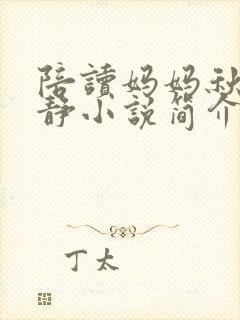 陪讀妈妈秋
静小説简介
丁太